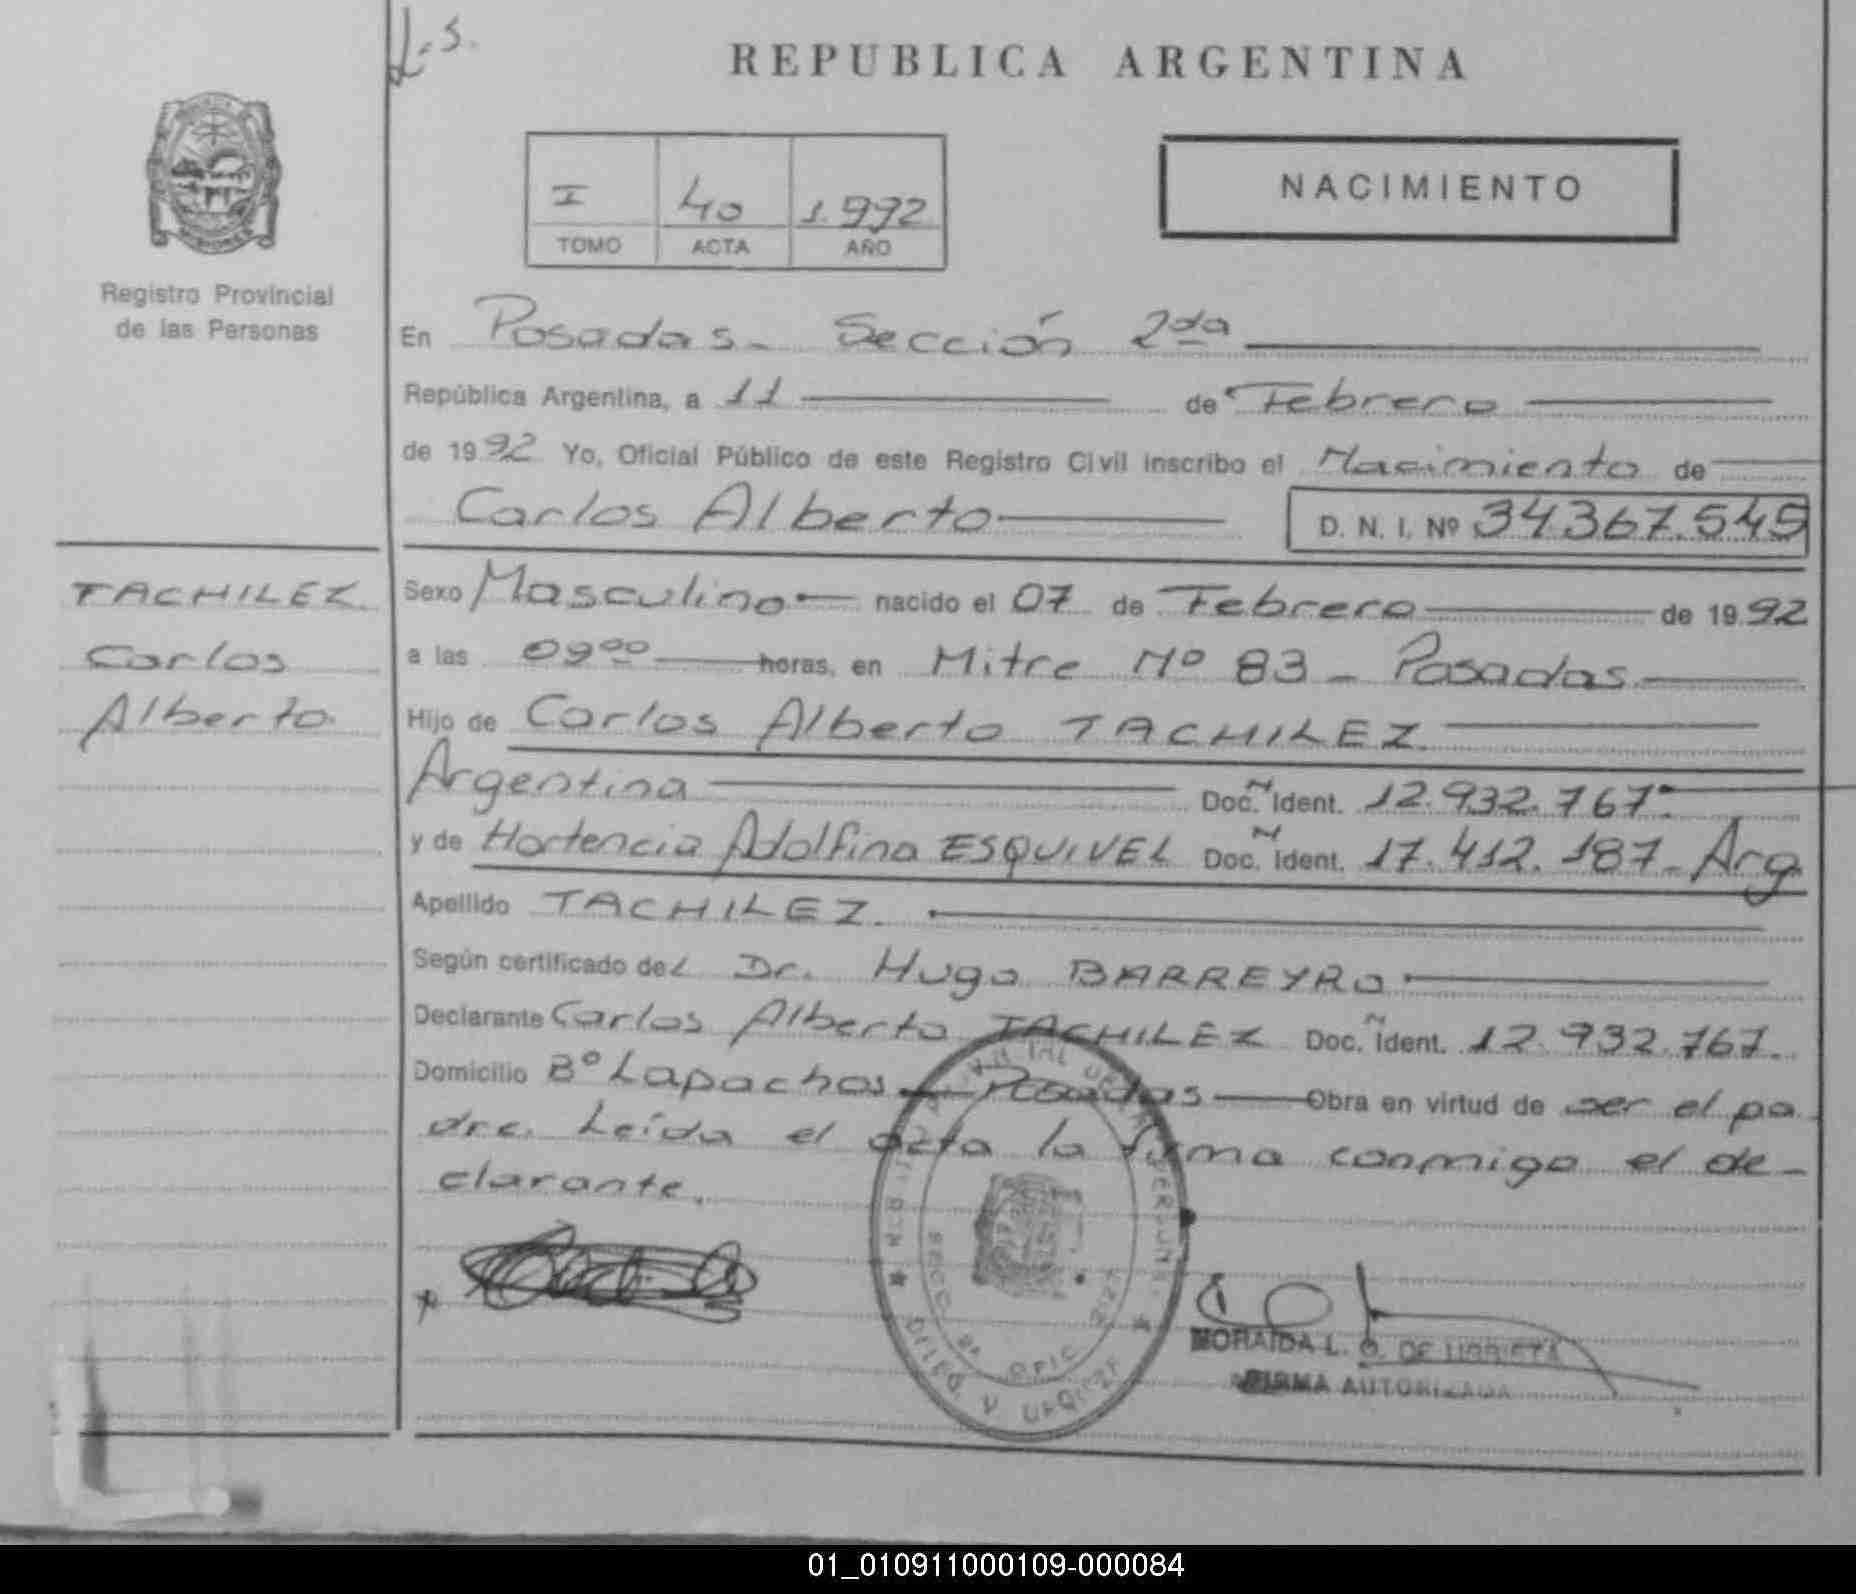 L.S.
REPUBLICA ARGENTINA
NACIMIENTO
I 40 1.992
TOMO ACTA AÑO
MISIONES
Registro Provincial
de las Personas
En Posadas - Sección 2da
República Argentina, a 11 de Febrero
de 1992 Yo, Oficial Público de este Registro Civil inscribo el Nacimiento de
Carlos Alberto D. N. I. Nº 34.367.545
TACHILEZ
Carlos
Alberto
Sexo Masculino nacido el 07 de Febrero de 1992
a las 0900 horas, en Mitre Nº 83 - Posadas
Hijo de Carlos Alberto TACHILEZ
Argentina Doc. N Ident. 12.932.767-
y de Hortencia Adolfina ESQUIVEL Doc. N Ident. 17.412.187- Arg
Apellido TACHILEZ.
Según certificado del Dr. Hugo BARREYRO
Declarante Carlos Alberto TACHILEZ Doc. N Ident. 12.932.767.
Domicilio Bº Lapachos - Posadas Obra en virtud de ser el pa
dre. Leída el acta la firma conmigo el de-
clarante.
SECC. 2ª OFIC.
NORAIDA L. O. DE URRIETA
FIRMA AUTORIZADA
01_010911000109-000084